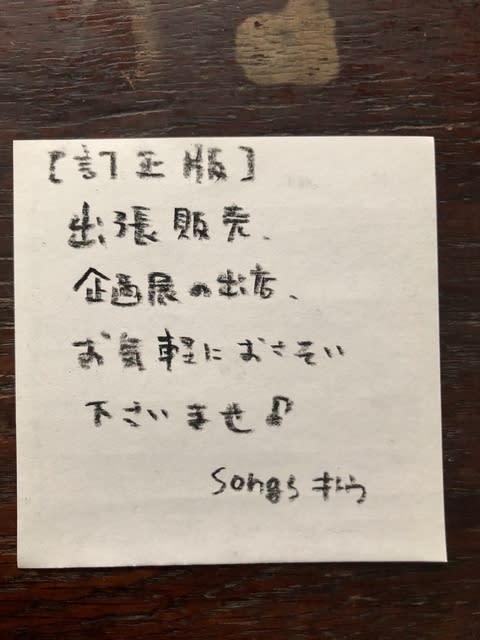 [訂正版]
出張販売、
企画展の出店、
お気軽におさそい
下さいませ♪
songs